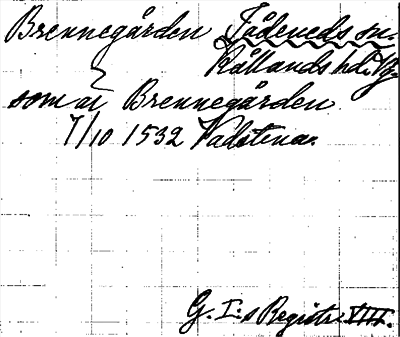 Brennegården Jådeneds sn.
Kållands hd. Vg.
som ai Brennegården
7/10 1532 Vadstena.
G. I:s Registr. VIII.